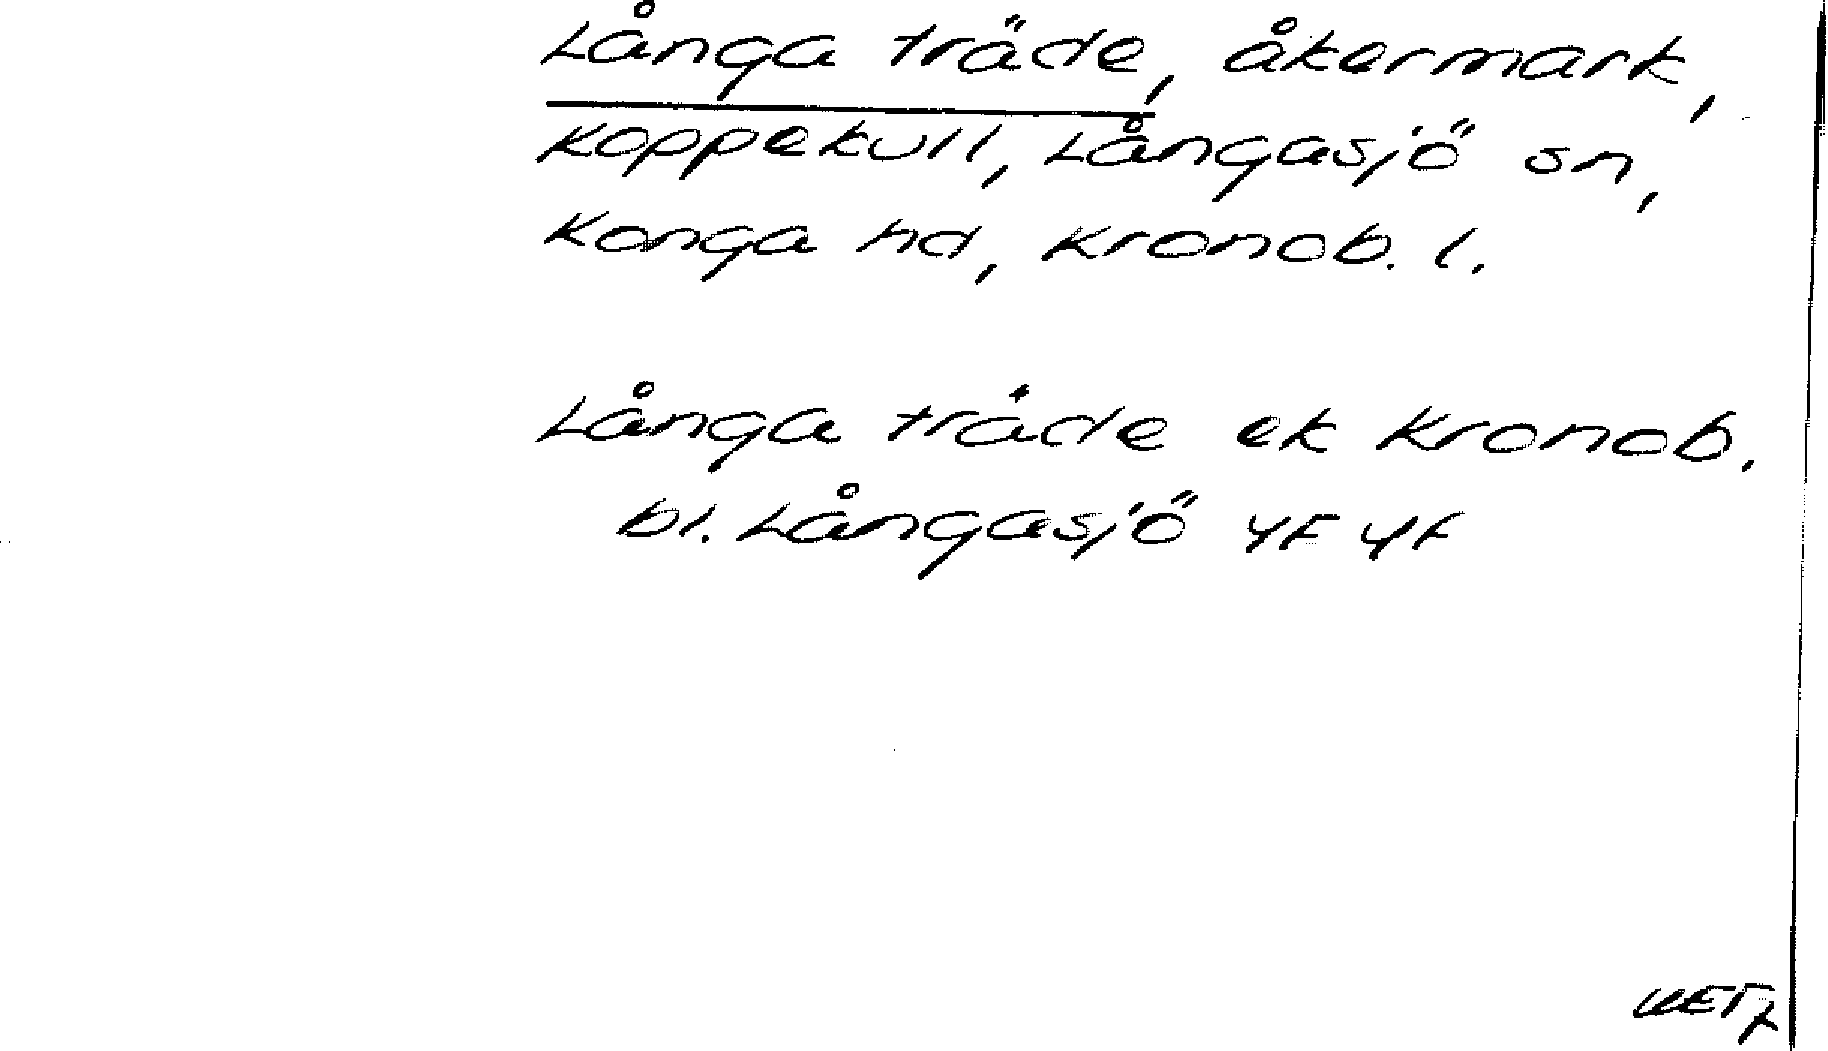 Långa träde, åkermark,
Koppekull, Långasjö sn,
Konga hd, Kronob. l.
Långa träde ek Kronob.
bl. Långasjö 4F 4f